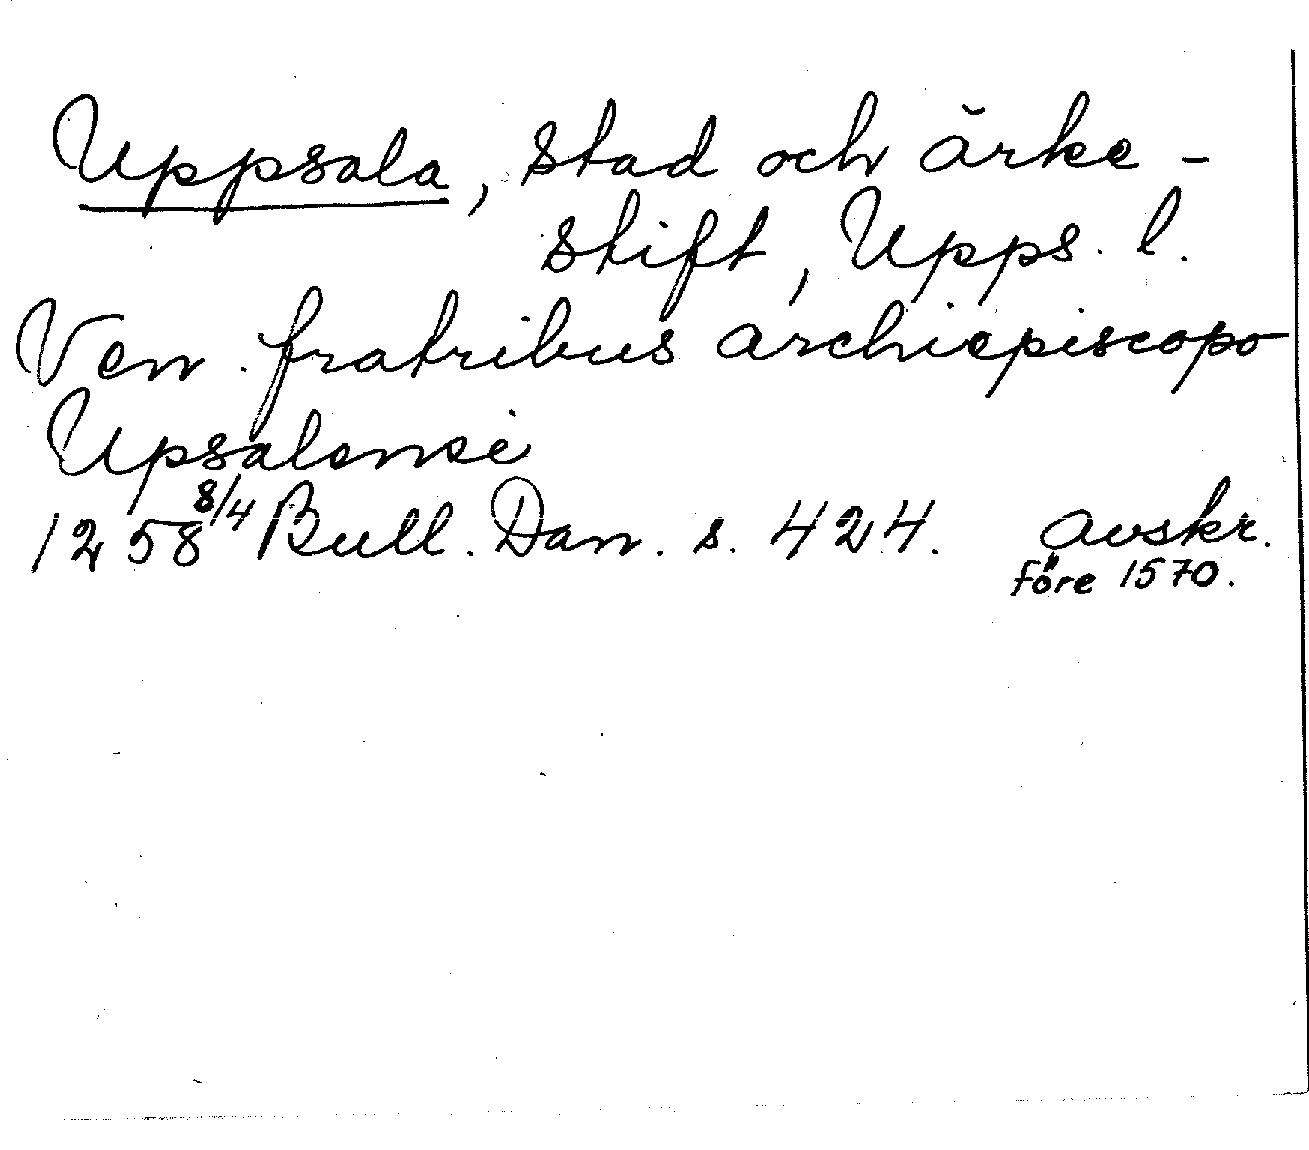 Uppsala, stad och ärke-
stift, Upps. l.
Ven. fratribus archiepiscopo
Upsalensi
1258 8/4 Bull. Dan. s. 424. avskr.
före 1570.